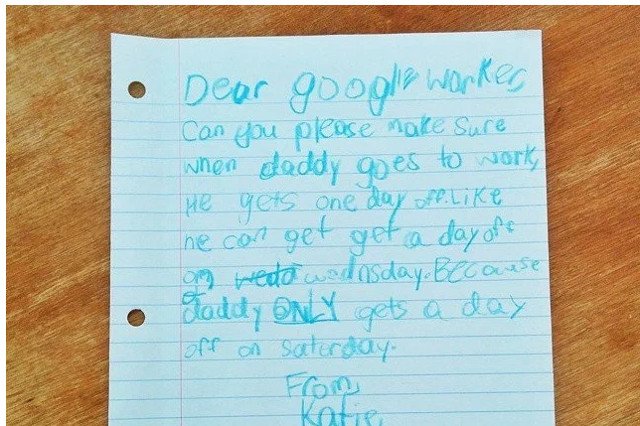 Dear google worker,
Can you please make sure
when daddy goes to work,
He gets one day off. Like
he can get get a day off
on wedo wadnsday. Because
daddy ONLY gets a day
off on saturday.
From,
Katie.